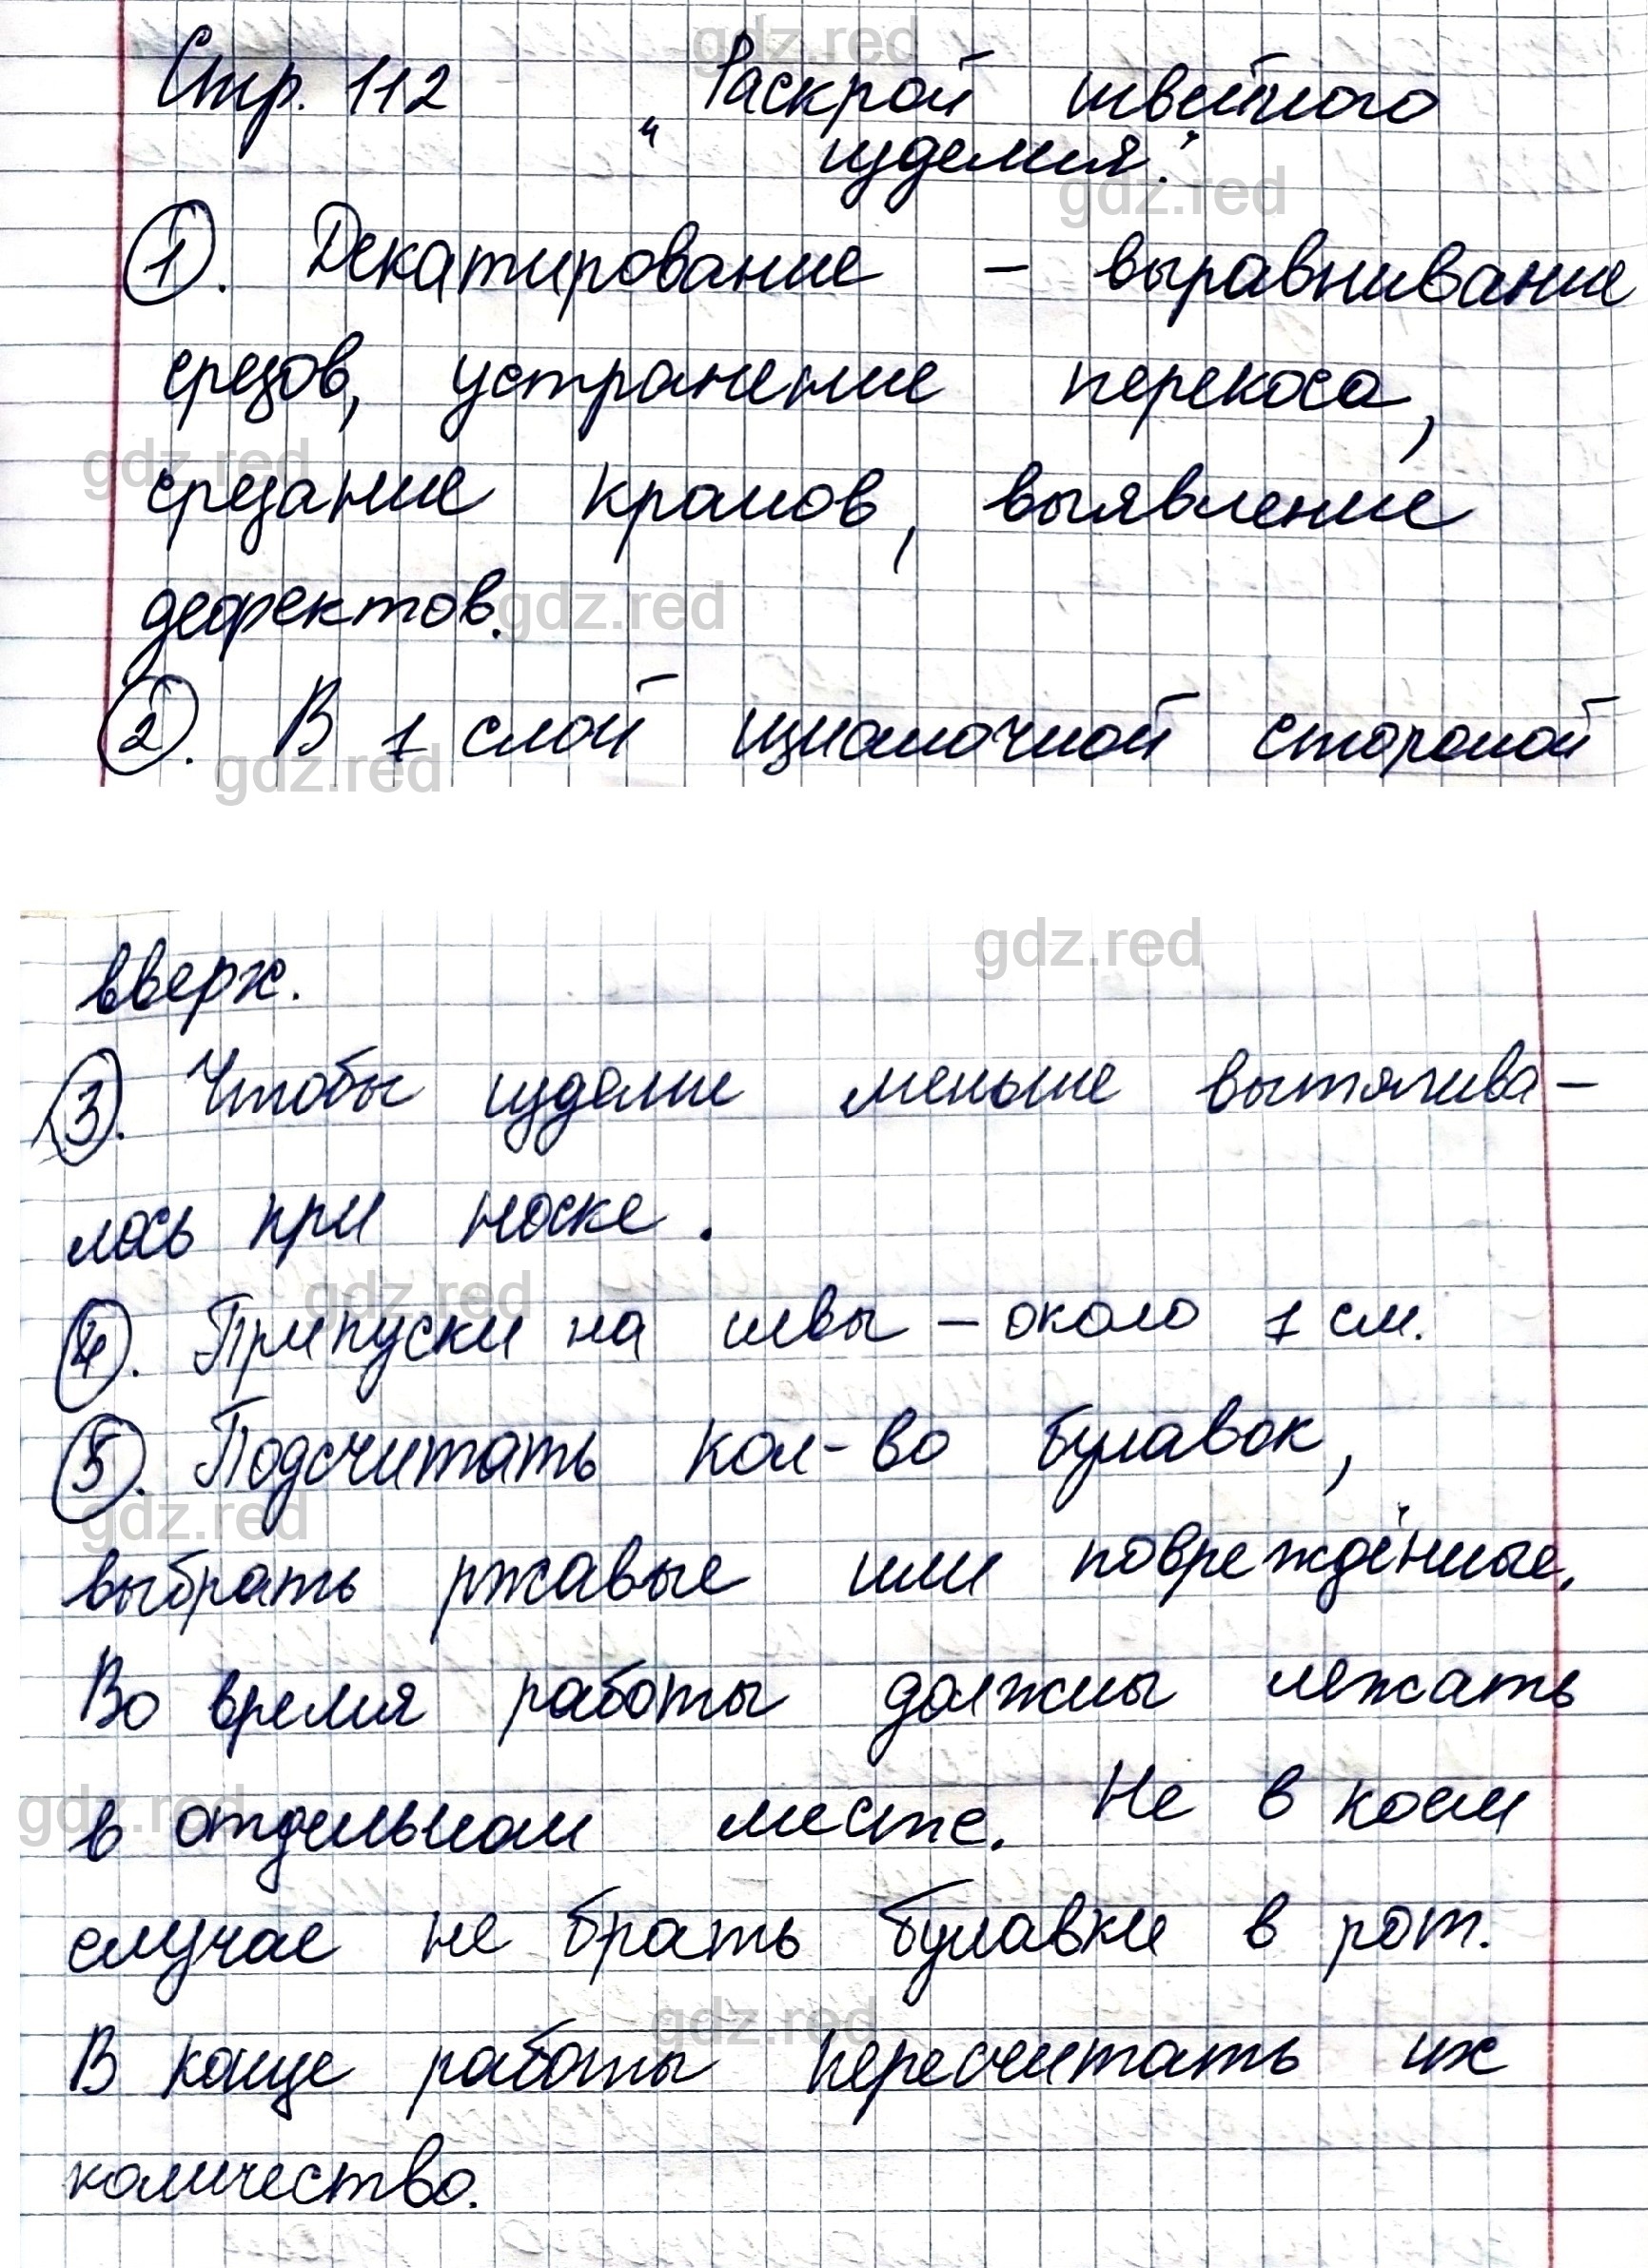 Стр. 112 „Раскрой швейного
изделия".
1. Декатирование – выравнивание
срезов, устранение перекоса,
срезание кромов, выявление
дефектов.
2. В 1 слой изнаночной стороной
вверх.
3. Чтобы изделие меньше вытягива-
лось при носке.
4. Припуски на швы – около 1 см.
5. Подсчитать кол-во булавок,
выбрать ржавые или повреждённые.
Во время работы должны лежать
в отдельном месте. Не в коем
случае не брать булавки в рот.
В конце работы пересчитать их
количество.
gdz.red
gdz.red
gdz.red
gdz.red
gdz.red
gdz.red
gdz.red
gdz.red
gdz.red
gdz.red